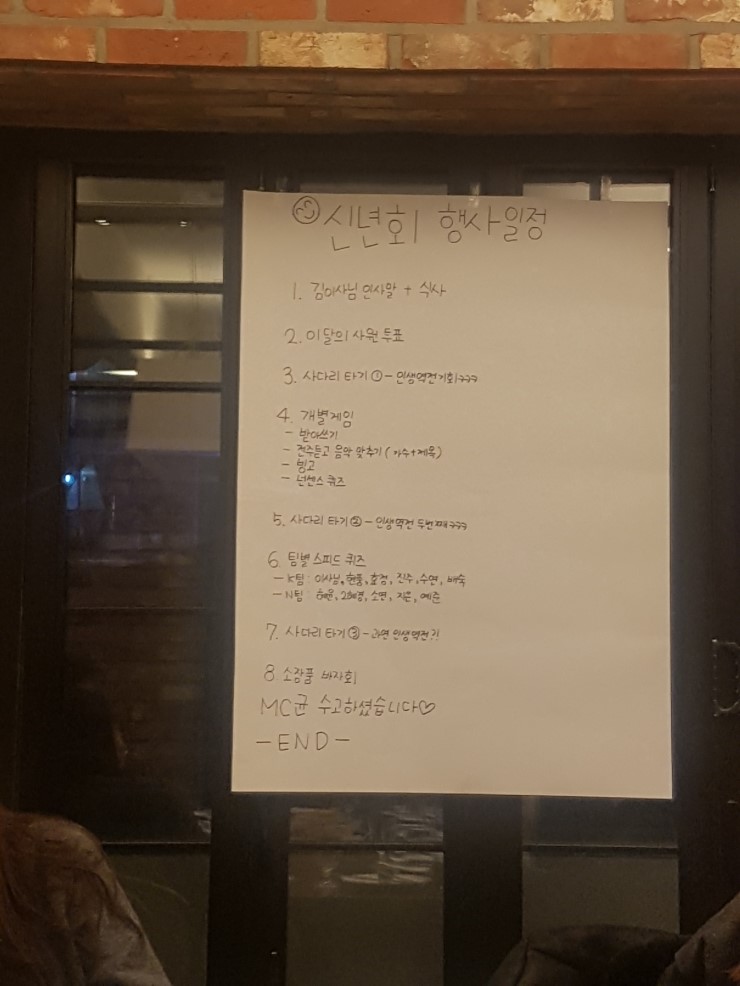 신년회 행사일정
1. 김이사님 인사말 + 식사
2. 이달의 사원 투표
3. 사다리 타기 ① - 인생역전기회 ㅋㅋㅋ
4. 개별게임
- 받아쓰기
- 전주듣고 음악 맞추기 (가수+제목)
- 빙고
- 넌센스 퀴즈
5. 사다리 타기 ② - 인생역전 두번째 ㅋㅋㅋ
6. 팀별 스피드 퀴즈
- K팀 : 이사님, 현풍, 효정, 진주, 수연, 배숙
- N팀 : 소연, 지은, 예준
7. 사다리 타기 ③ - 과연 인생역전?!
8. 소장품 바자회
MC균 수고하셨습니다♡
- END -